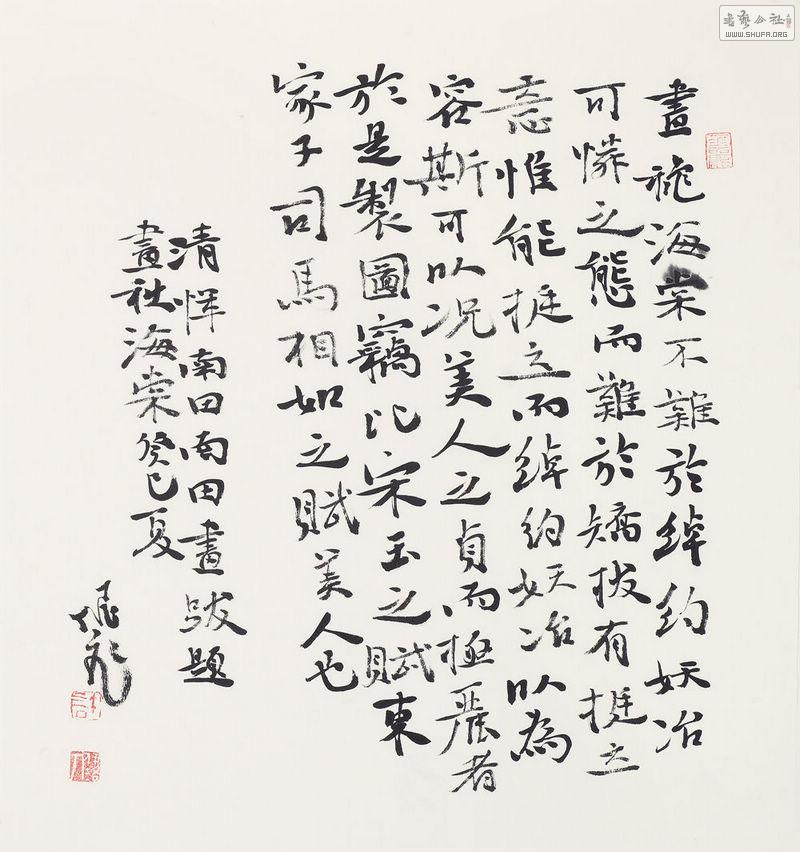 畫秋海棠不難於綽約妖冶
可憐之態而難於矯拔有挺立
意惟能挺立而綽約妖冶以為
容斯可以況美人之貞而極麗者
於是製圖竊比宋玉之賦東
家子司馬相如之賦美人也
清惲南田南田畫跋題
畫秋海棠癸巳夏
書藝公社
WWW.SHUFA.ORG